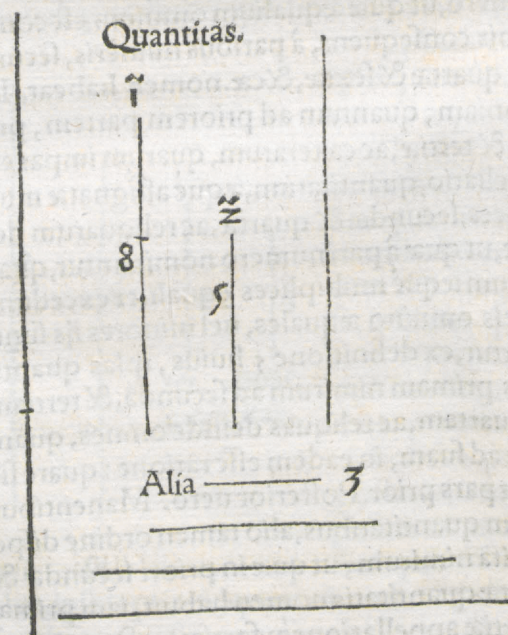 Quantitas.
8
5
Alia 3